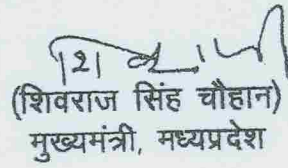 (शिवराज सिंह चौहान)
मुख्यमंत्री, मध्यप्रदेश